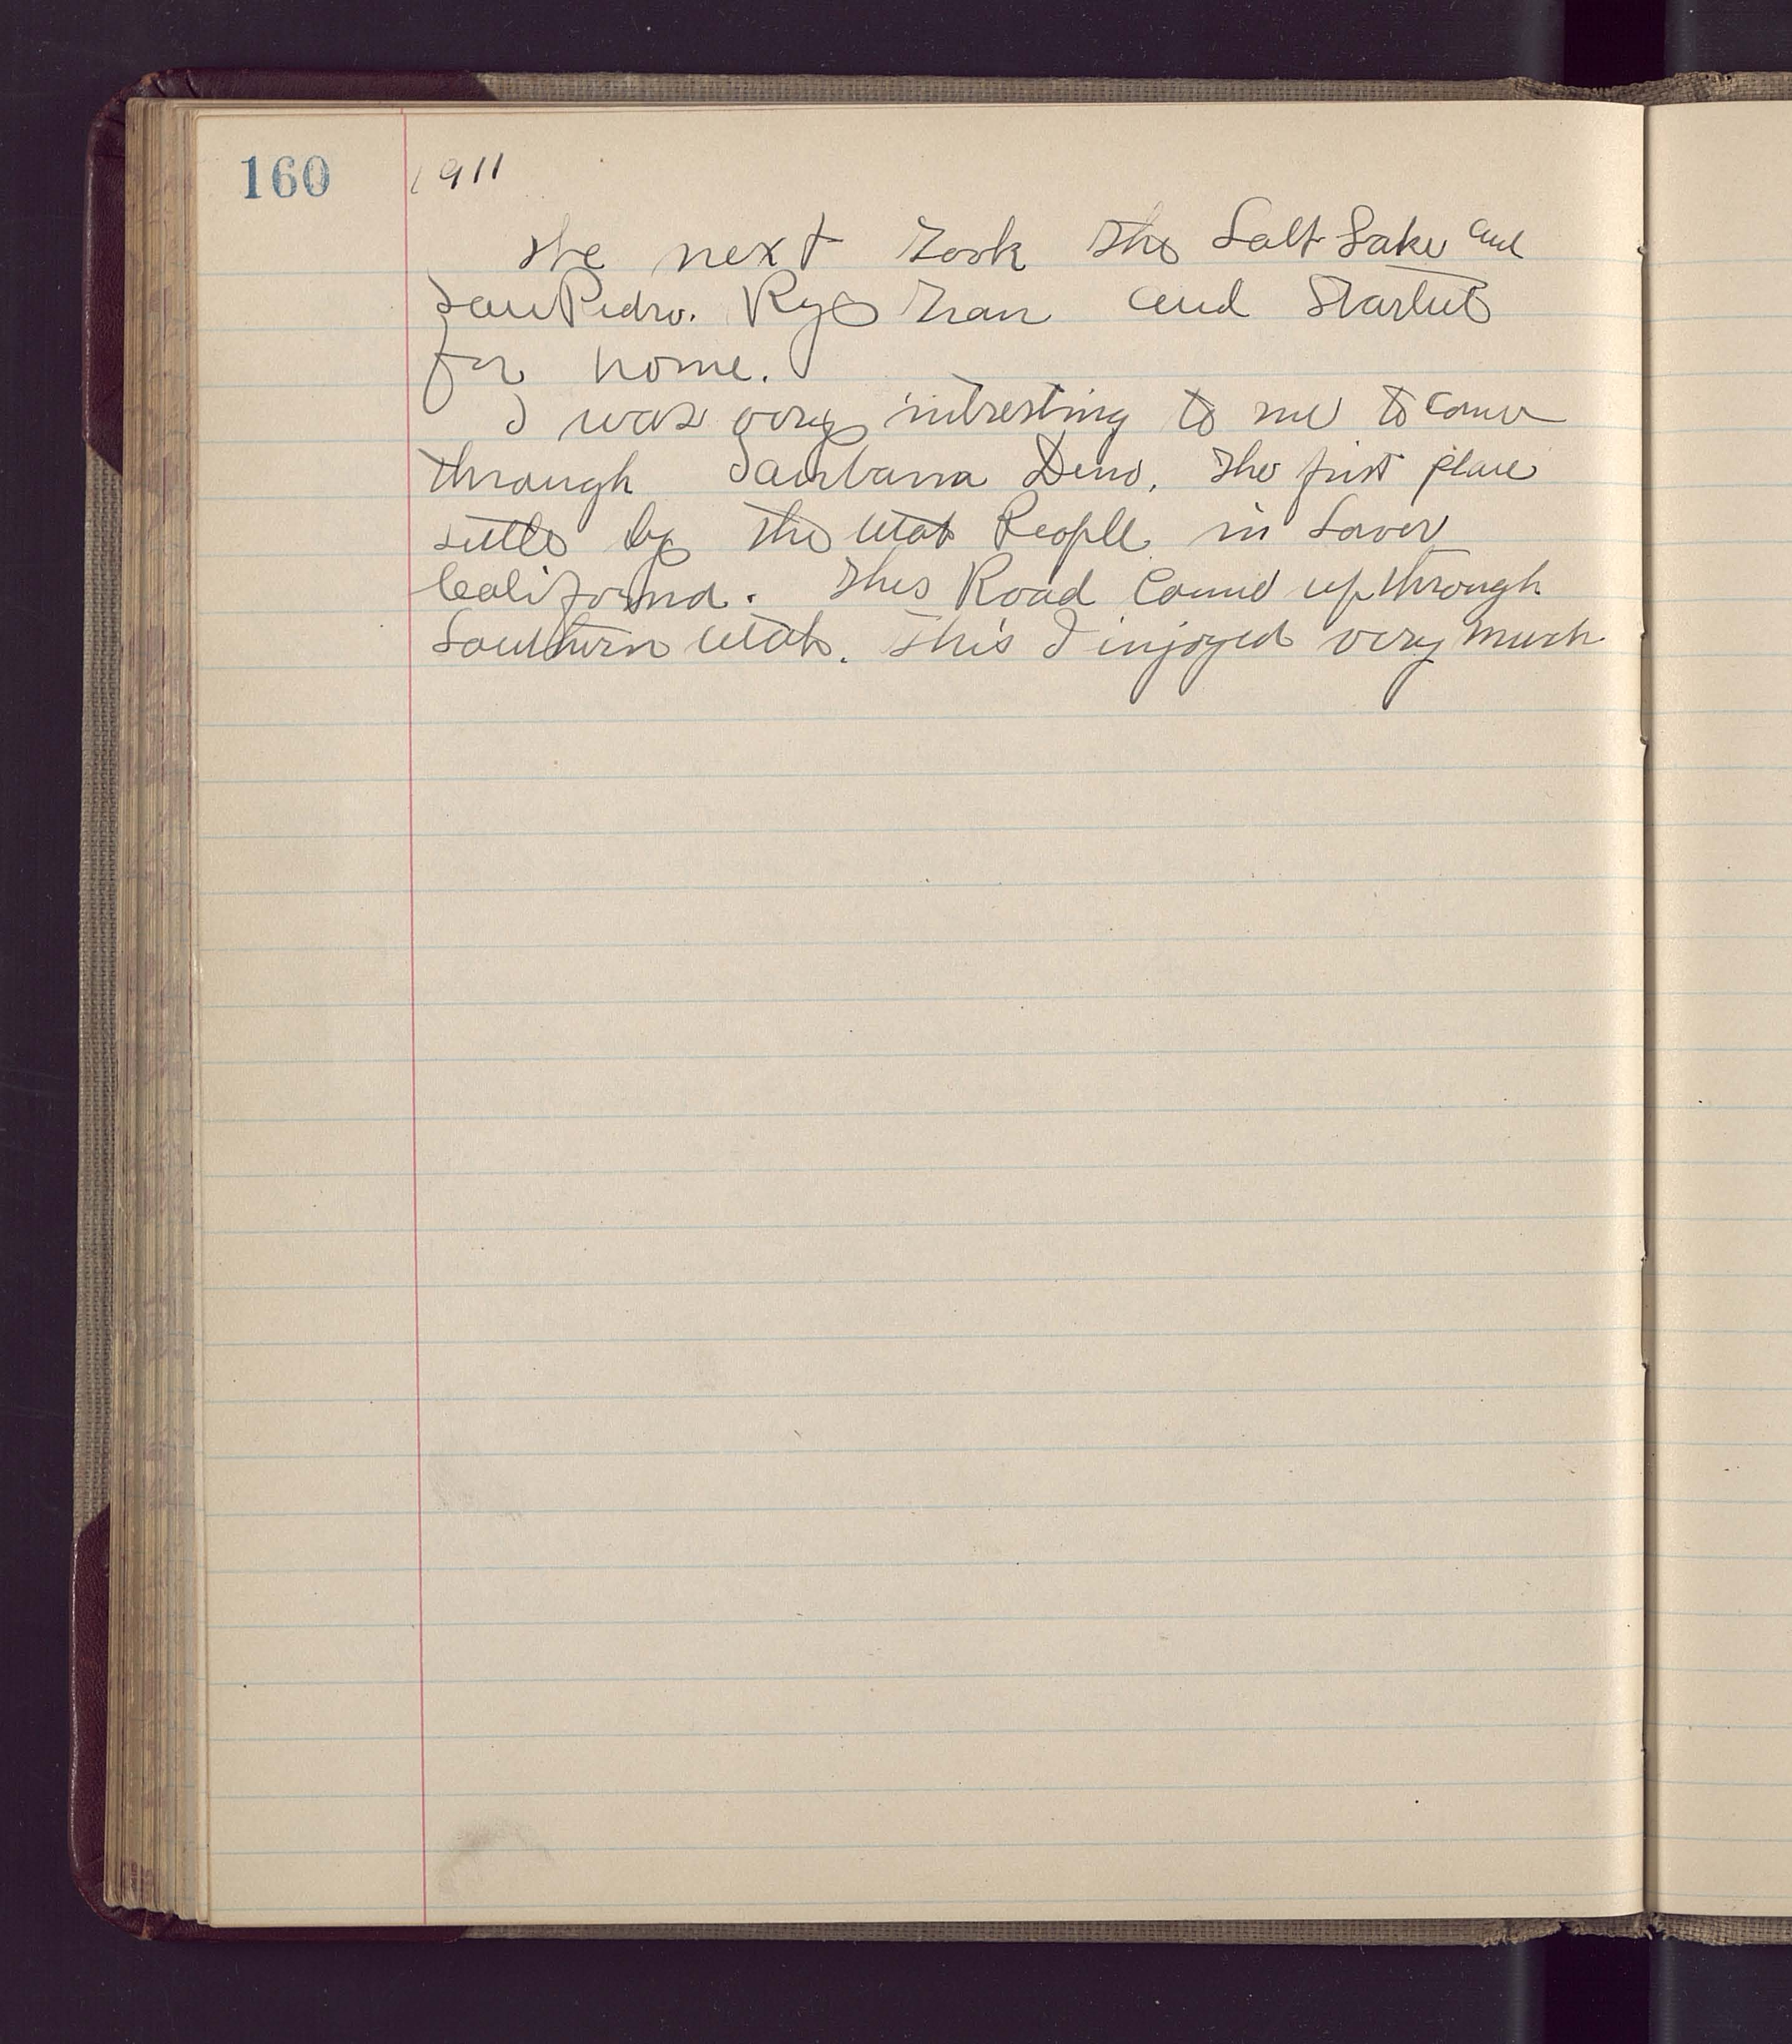 160 1911
We next took the Salt Lake and
San Pedro. Ry tran and Started
for home.
I was very intresting to me to come
through Sanbarna Deno. The first place
settle by the Utah People in Lower
California. This Road Come up through
Southern Utah. This I injoyed very much